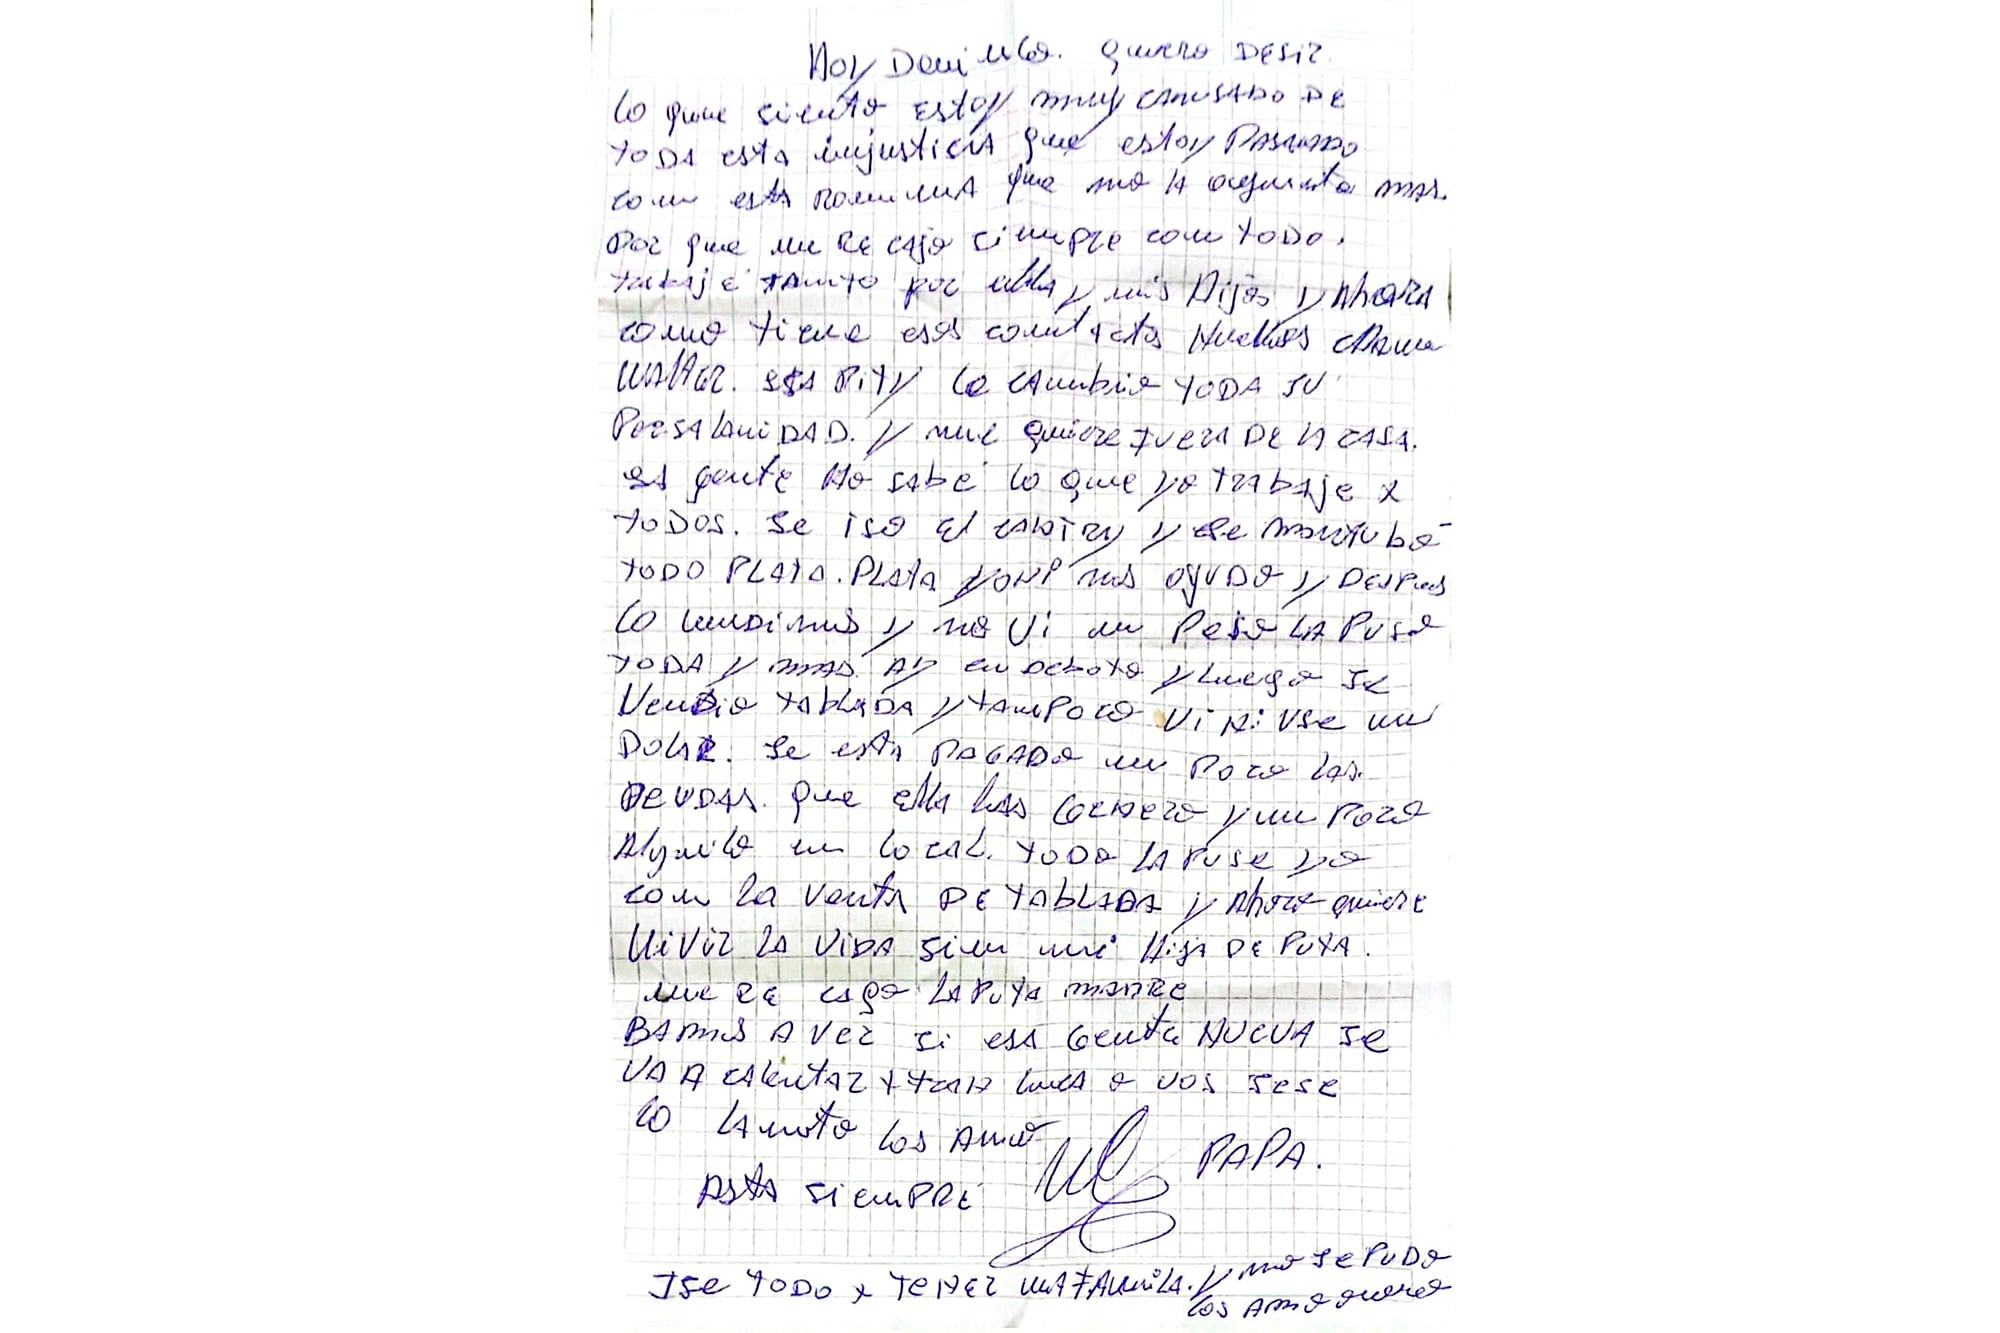 Hoy Domingo. quiero DESir.
lo que siento estoy muy cansado DE
toda esta injusticia que estoy PASANDO
con esta que no la aguanto mas.
Por que me RE cago siempre con todo.
trabaje tanto por ella y mis Hijos y Ahora
como tiene esos contactos Nuebos
esa Pity le cambio TODA SU
PersalaniDAD. y me quiere FUERA DE la CASA.
esa gente No sabe lo que yo trabaje x
toDOS. Se iso el y se mantubo
todo PLATA. PLATA y me ayudo y DESPues
lo vendimos y no Vi un Peso LA PUSE
TODA y mas. Ay en Deboto y Luego se
VenDio TABLADA y tamPoco Vi Ni Use un
DolaR. Se esta PAGADO un Poco las.
DEUDAS. que ella las Genero y un Poco
Alquilo un local. toDo LA PUSE yo
con la venta DE TABLADA y Ahora quiere
ViVir la ViDA sin mi Hija DE PUTA.
me RE cago LA PUTA MADRE
BAMOS A Ver si esa Gente NUEVA se
VA A calentar x a vos sese
lo lamento los Amo
Asta siemPRE PAPA.
Ise toDo x TENER una FAMiliA. y no se PUDo
los Amo